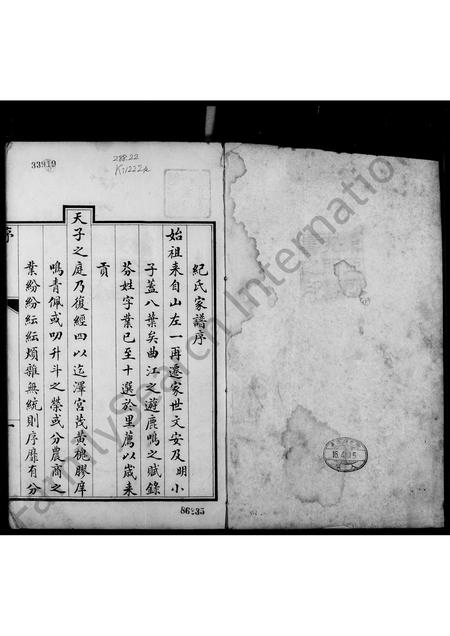 33919
288.22
K71222
紀氏家譜序
始祖来自山左一再遷家世文安及明小
子蓋八葉矣曲江之遊鹿鳴之賦錄
芬姓字業已至十選於里薦以歲来
貢
天子之庭乃復經四以迄澤宮茂黃槐膠庠
鳴青佩或叨升斗之榮或分農商之
業紛紛紜紜煩雜無統則序靡有分
序
一
86235
FamilySearch International